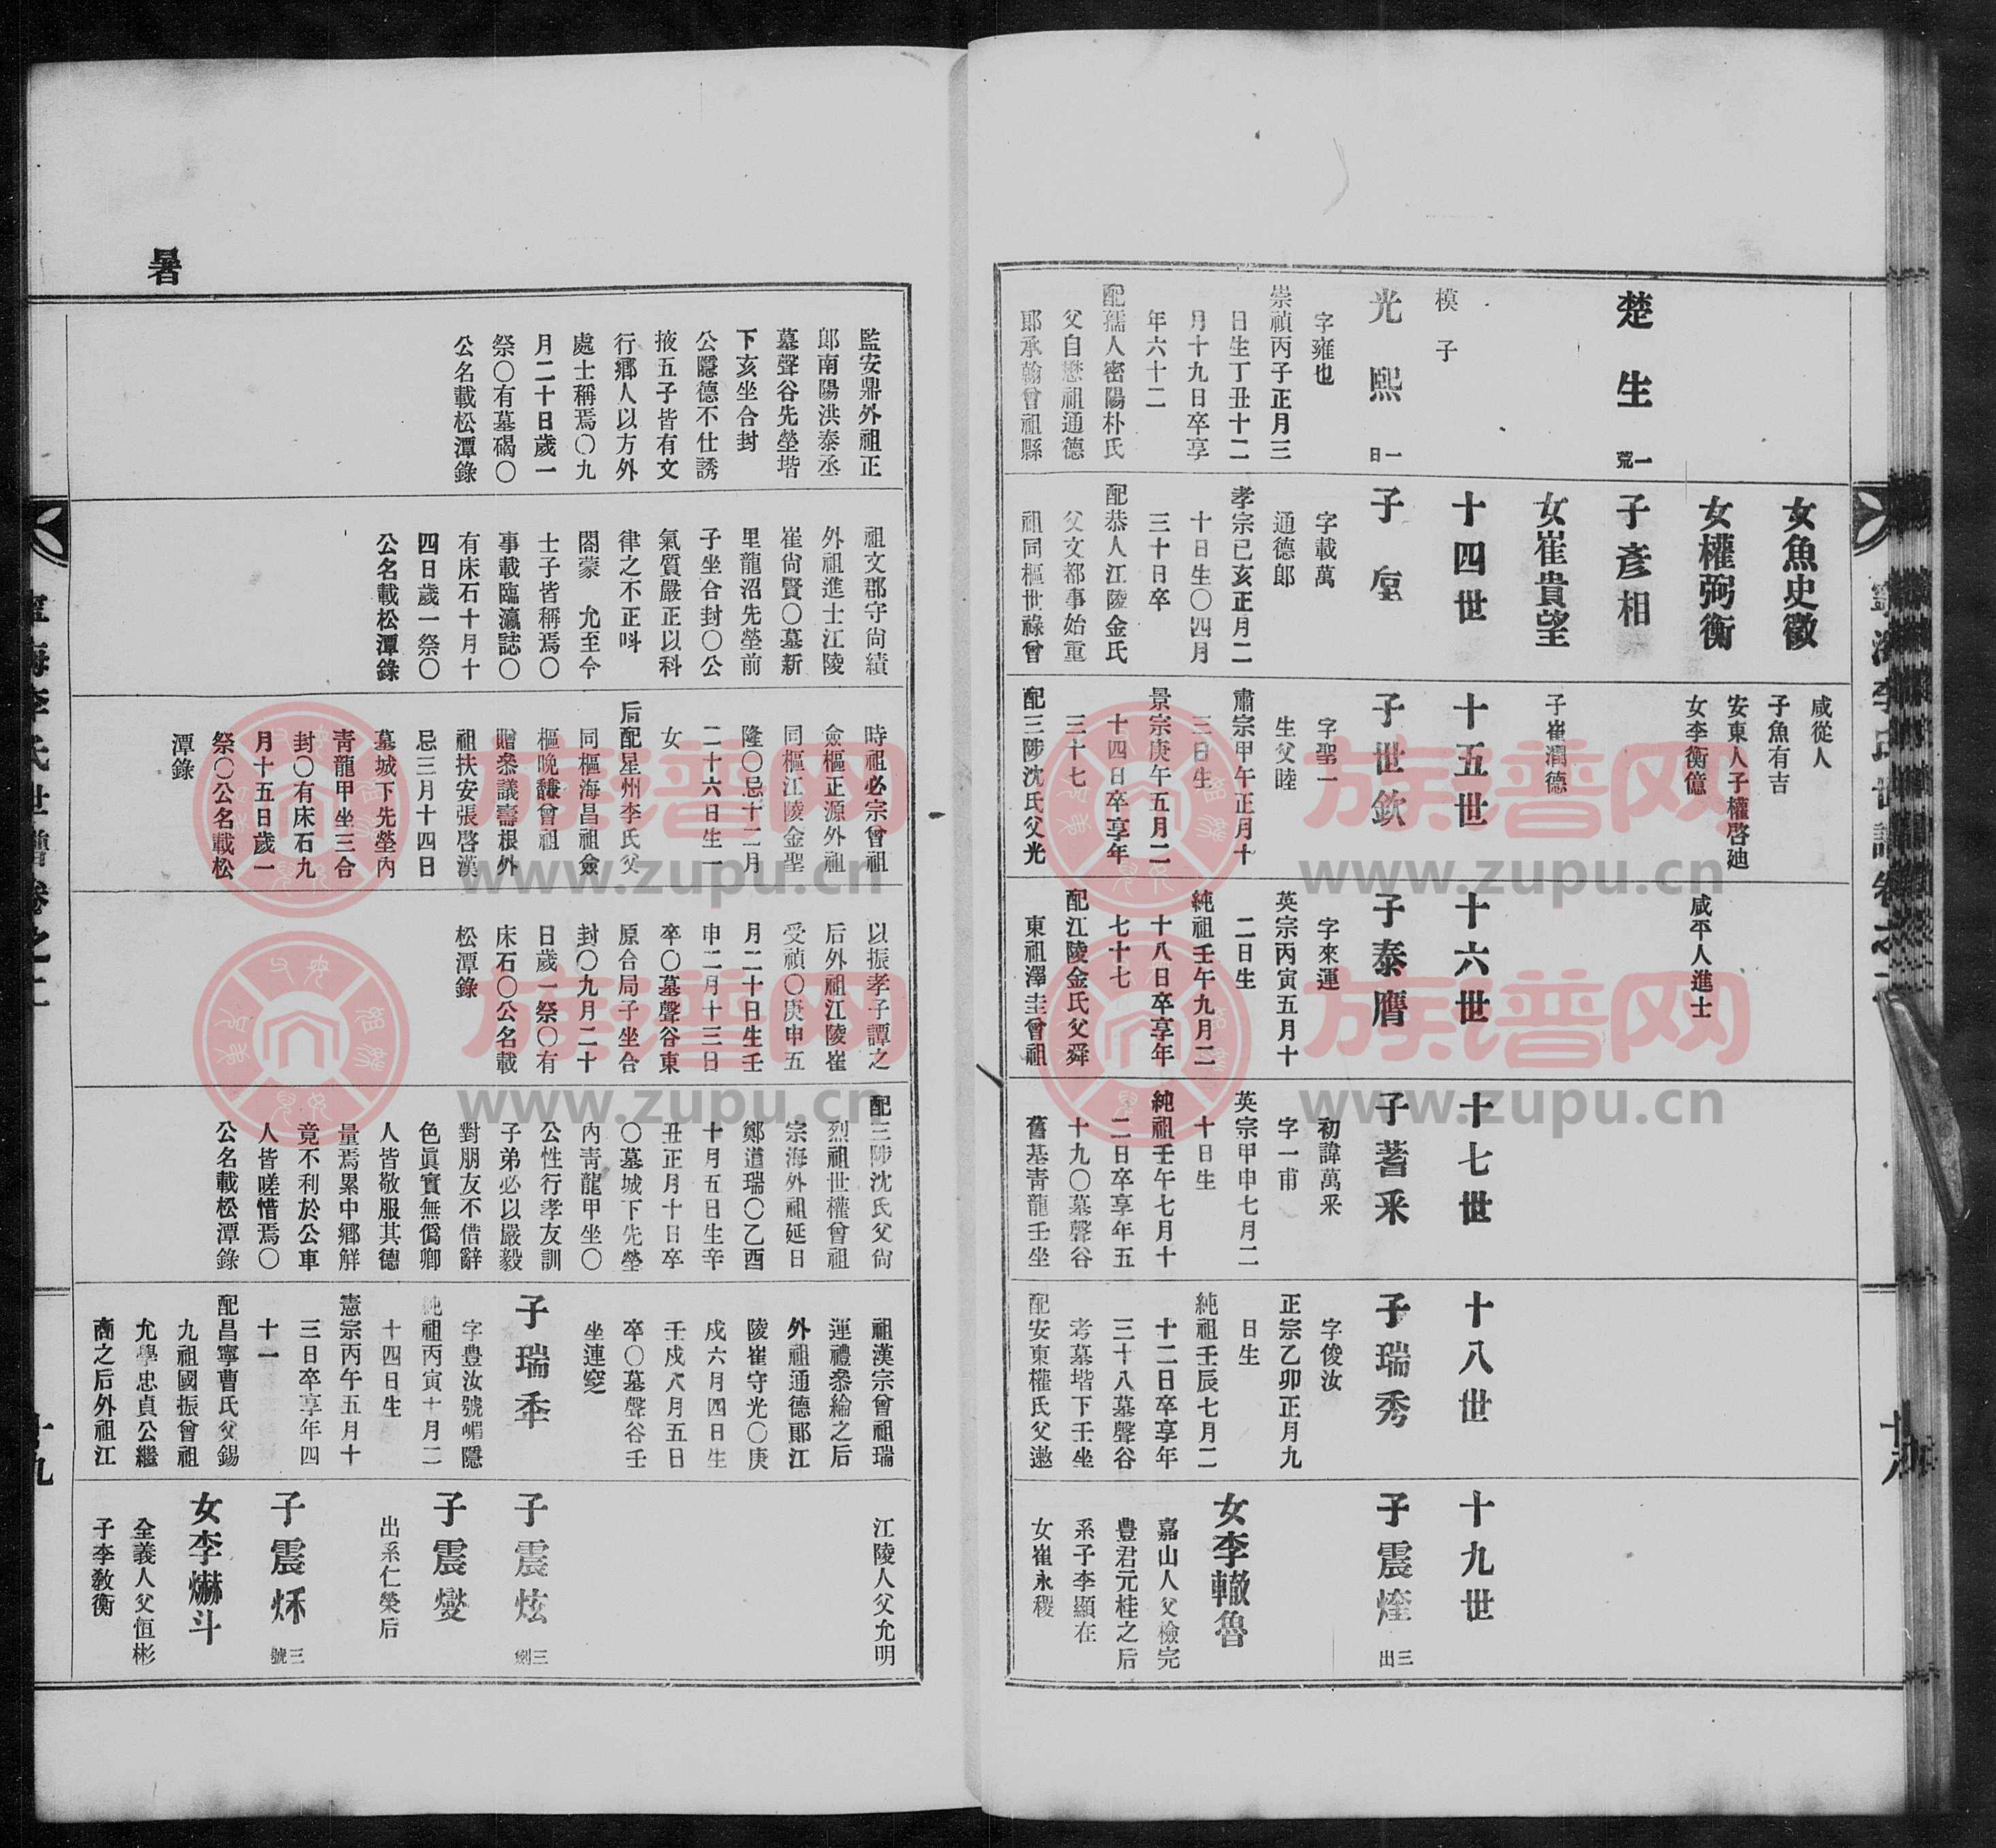 楚生
一荒
模子
光熙
一日
字雍也
崇禎丙子正月三
日生丁丑十二
月十九日卒享
年六十二
配孺人密陽朴氏
父自懋祖通德
郞承翰曾祖縣
女魚史徵
女權弼衡
子彥相
女崔貴望
十四世
子
字載萬
通德郞
孝宗己亥正月二
十日生〇四月
三十日卒
配恭人江陵金氏
父文都事始重
祖同樞世祿曾
咸從人
子魚有吉
安東人子權啓迪
女李衡億
子崔潤德
十五世
子世欽
字聖一
生父睦
肅宗甲午正月十
三日生
景宗庚午五月二
十四日卒享年
三十七
配三陟沈氏父光
咸平人進士
十六世
子泰膺
字來運
英宗丙寅五月十
二日生
純祖壬午九月二
十八日卒享年
七十七
配江陵金氏父舜
東祖澤圭曾祖
十七世
子蓍采
初諱萬采
字一甫
英宗甲申七月二
十日生
純祖壬午七月十
二日卒享年五
十九〇墓聲谷
舊基靑龍壬坐
十八世
子瑞秀
字俊汝
正宗乙卯正月九
日生
純祖壬辰七月二
十二日卒享年
三十八墓聲谷
考墓堦下壬坐
配安東權氏父遨
十九世
子震煃
三出
女李轍魯
嘉山人父檢完
豊君元桂之后
系子李顯在
女崔永稷
寧海李氏世譜卷之二
十八
暑
監安鼎外祖正
郞南陽洪泰丞
墓聲谷先塋堦
下亥坐合封
公隱德不仕誘
掖五子皆有文
行鄉人以方外
處士稱焉〇九
月二十日歲一
祭〇有墓碣〇
公名載松潭錄
祖文郡守尙績
外祖進士江陵
崔尙賢〇墓新
里龍沼先塋前
子坐合封〇公
氣質嚴正以科
律之不正呌
閤蒙 允至今
士子皆稱焉〇
事載臨瀛誌〇
有床石十月十
四日歲一祭〇
公名載松潭錄
時祖必宗曾祖
僉樞正源外祖
同樞江陵金聖
隆〇忌十二月
二十六日生一
女
后配星州李氏父
同樞海昌祖僉
樞晩馦曾祖
贈叅議壽根外
祖扶安張啓漢
忌三月十四日
墓城下先塋內
靑龍甲坐三合
封〇有床石九
月十五日歲一
祭〇公名載松
潭錄
以振孝子譚之
后外祖江陵崔
受禎〇庚申五
月二十日生壬
申二月十三日
卒〇墓聲谷東
原合局子坐合
封〇九月二十
日歲一祭〇有
床石〇公名載
松潭錄
配三陟沈氏父尙
烈祖世權曾祖
宗海外祖延日
鄭道瑞〇乙酉
十月五日生辛
丑正月十日卒
〇墓城下先塋
內靑龍甲坐〇
公性行孝友訓
子弟必以嚴毅
對朋友不借辭
色眞實無僞鄕
人皆敬服其德
量焉累中鄕解
竟不利於公車
人皆嗟惜焉〇
公名載松潭錄
祖漢宗曾祖瑞
運禮叅綸之后
外祖通德郞江
陵崔守光〇庚
戌六月四日生
壬戌八月五日
卒〇墓聲谷壬
坐連窆
子瑞㐘
字豊汝號嵋隱
純祖丙寅十月二
十四日生
憲宗丙午五月十
三日卒享年四
十一
配昌寧曹氏父錫
九祖國振曾祖
允學忠貞公繼
商之后外祖江
江陵人父允明
子震炫
三劍
子震燮
出系仁榮后
子震炢
三號
女李爀斗
全義人父恒彬
子李敎衡
寧海李氏世譜卷之二
十九
族谱网
www.zupu.cn
族谱网
www.zupu.cn
族谱网
www.zupu.cn
族谱网
www.zupu.cn